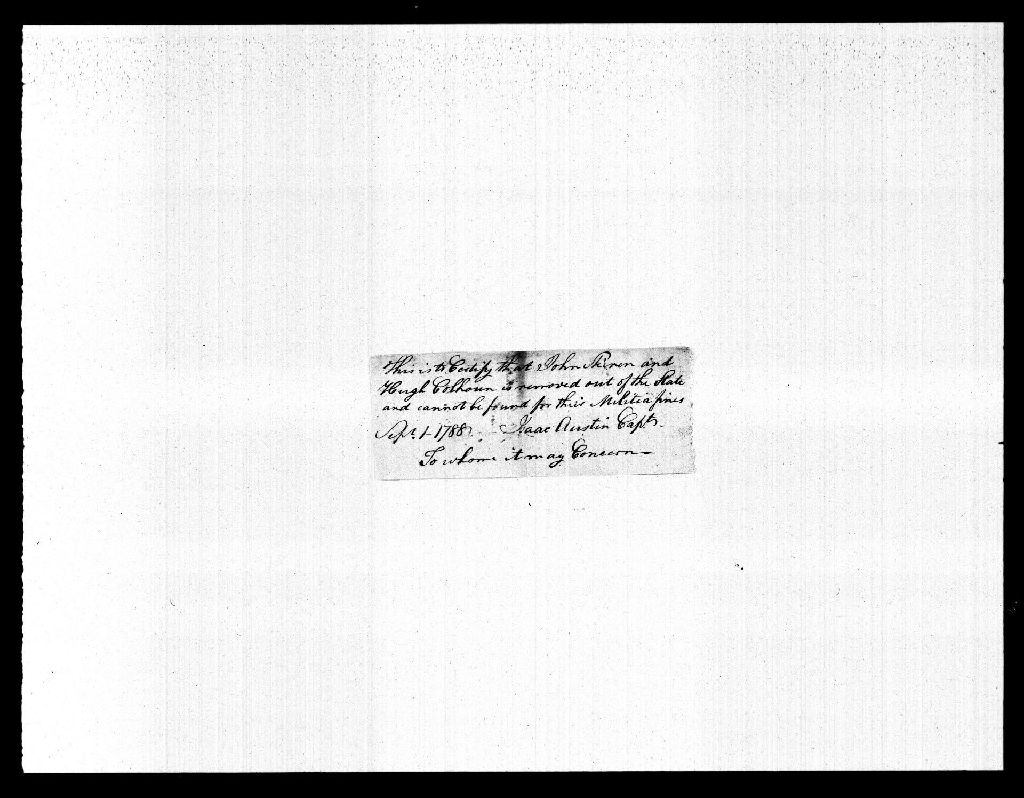 This is to Certify that John and
Hugh Colhoun is removed out of the State
and cannot be found for thier Militia fines
Sept. 1 1788 Isaac Austin Capt.
To whome it may Concern